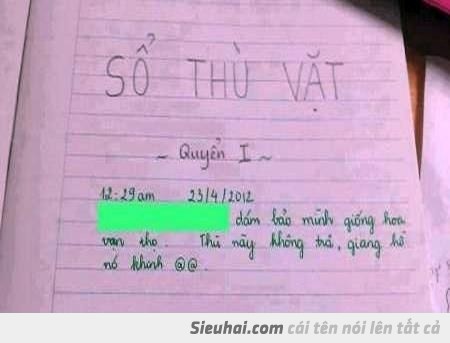 SỔ THÙ VẶT
~ Quyển I ~
12:29am 23/4/2012
dám bảo mình giống hoa
vạn thọ. Thù này không trả, giang hồ
nó khinh @@.
Sieuhai.com cái tên nói lên tất cả